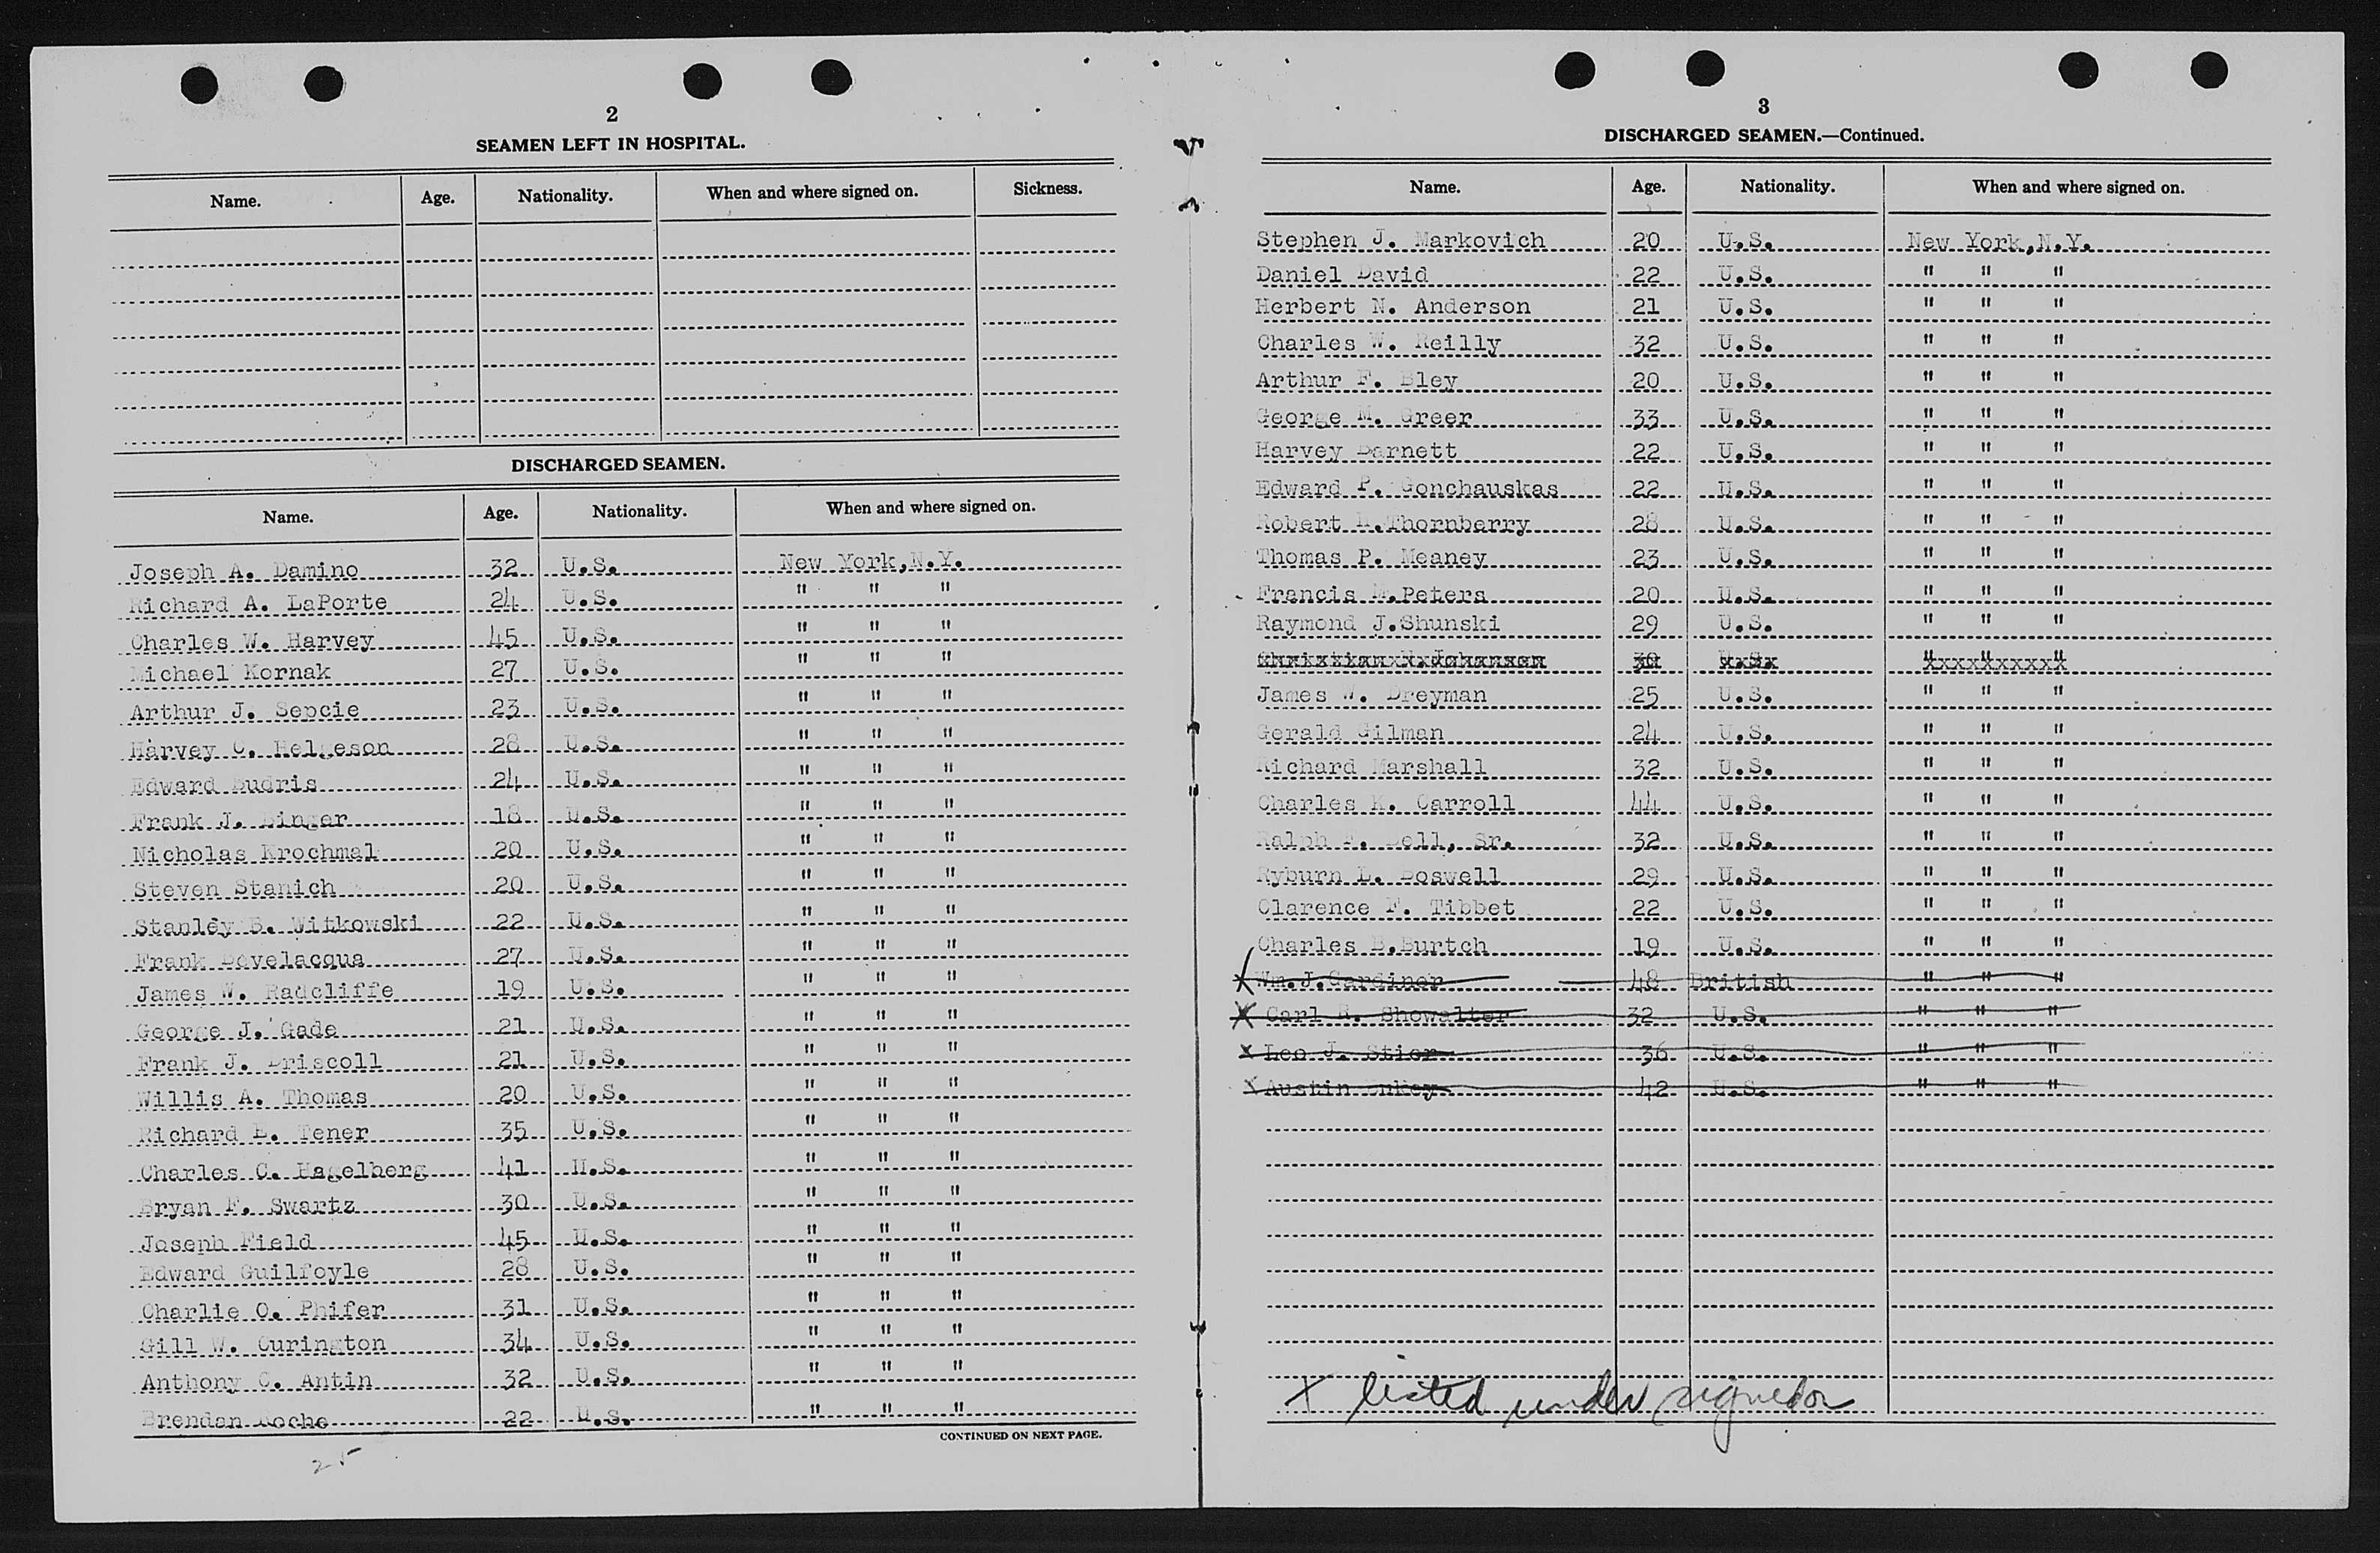 2
SEAMEN LEFT IN HOSPITAL.
Name. Age. Nationality. When and where signed on. Sickness.
DISCHARGED SEAMEN.
Name. Age. Nationality. When and where signed on.
Joseph A. Damino 32 U.S. New York,N.Y.
Richard A. LaPorte 24 U.S. " " "
Charles W. Harvey 45 U.S. " " "
Michael Kornak 27 U.S. " " "
Arthur J. Sepcie 23 U.S. " " "
Harvey C. Helgeson 28 U.S. " " "
Edward Budris 24 U.S. " " "
Frank J. Binger 18 U.S. " " "
Nicholas Krochmal 20 U.S. " " "
Steven Stanich 20 U.S. " " "
Stanley B. Witkowski 22 U.S. " " "
Frank Bevelacqua 27 U.S. " " "
James W. Radcliffe 19 U.S. " " "
George J. Gade 21 U.S. " " "
Frank J. Driscoll 21 U.S. " " "
Willis A. Thomas 20 U.S. " " "
Richard E. Tener 35 U.S. " " "
Charles C. Hagelberg 41 U.S. " " "
Bryan F. Swartz 30 U.S. " " "
Joseph Field 45 U.S. " " "
Edward Guilfoyle 28 U.S. " " "
Charlie O. Phifer 31 U.S. " " "
Gill W. Curington 34 U.S. " " "
Anthony C. Antin 32 U.S. " " "
Brendan Roche 22 U.S. " " "
CONTINUED ON NEXT PAGE.
25
3
DISCHARGED SEAMEN.—Continued.
Name. Age. Nationality. When and where signed on.
Stephen J. Markovich 20 U.S. New York,N.Y.
Daniel David 22 U.S. " " "
Herbert N. Anderson 21 U.S. " " "
Charles W. Reilly 32 U.S. " " "
Arthur F. Bley 20 U.S. " " "
George M. Greer 33 U.S. " " "
Harvey Barnett 22 U.S. " " "
Edward P. Gonchauskas 22 U.S. " " "
Robert Thornberry 28 U.S. " " "
Thomas P. Meaney 23 U.S. " " "
Francis M.Peters 20 U.S. " " "
Raymond J.Shunski 29 U.S. " " "
James W. Dreyman 25 U.S. " " "
Gerald Gilman 24 U.S. " " "
Richard Marshall 32 U.S. " " "
Charles K. Carroll 44 U.S. " " "
Ralph Bell, Sr. 32 U.S. " " "
Ryburn L. Boswell 29 U.S. " " "
Clarence F. Tibbet 22 U.S. " " "
Charles B.Burtch 19 U.S. " " "
x Wm.J.Gardiner 48 British " " "
x Carl Showalter 32 U.S. " " "
x Leo J. Stier 36 U.S. " " "
x Austin 42 U.S. " " "
x listed under signedon